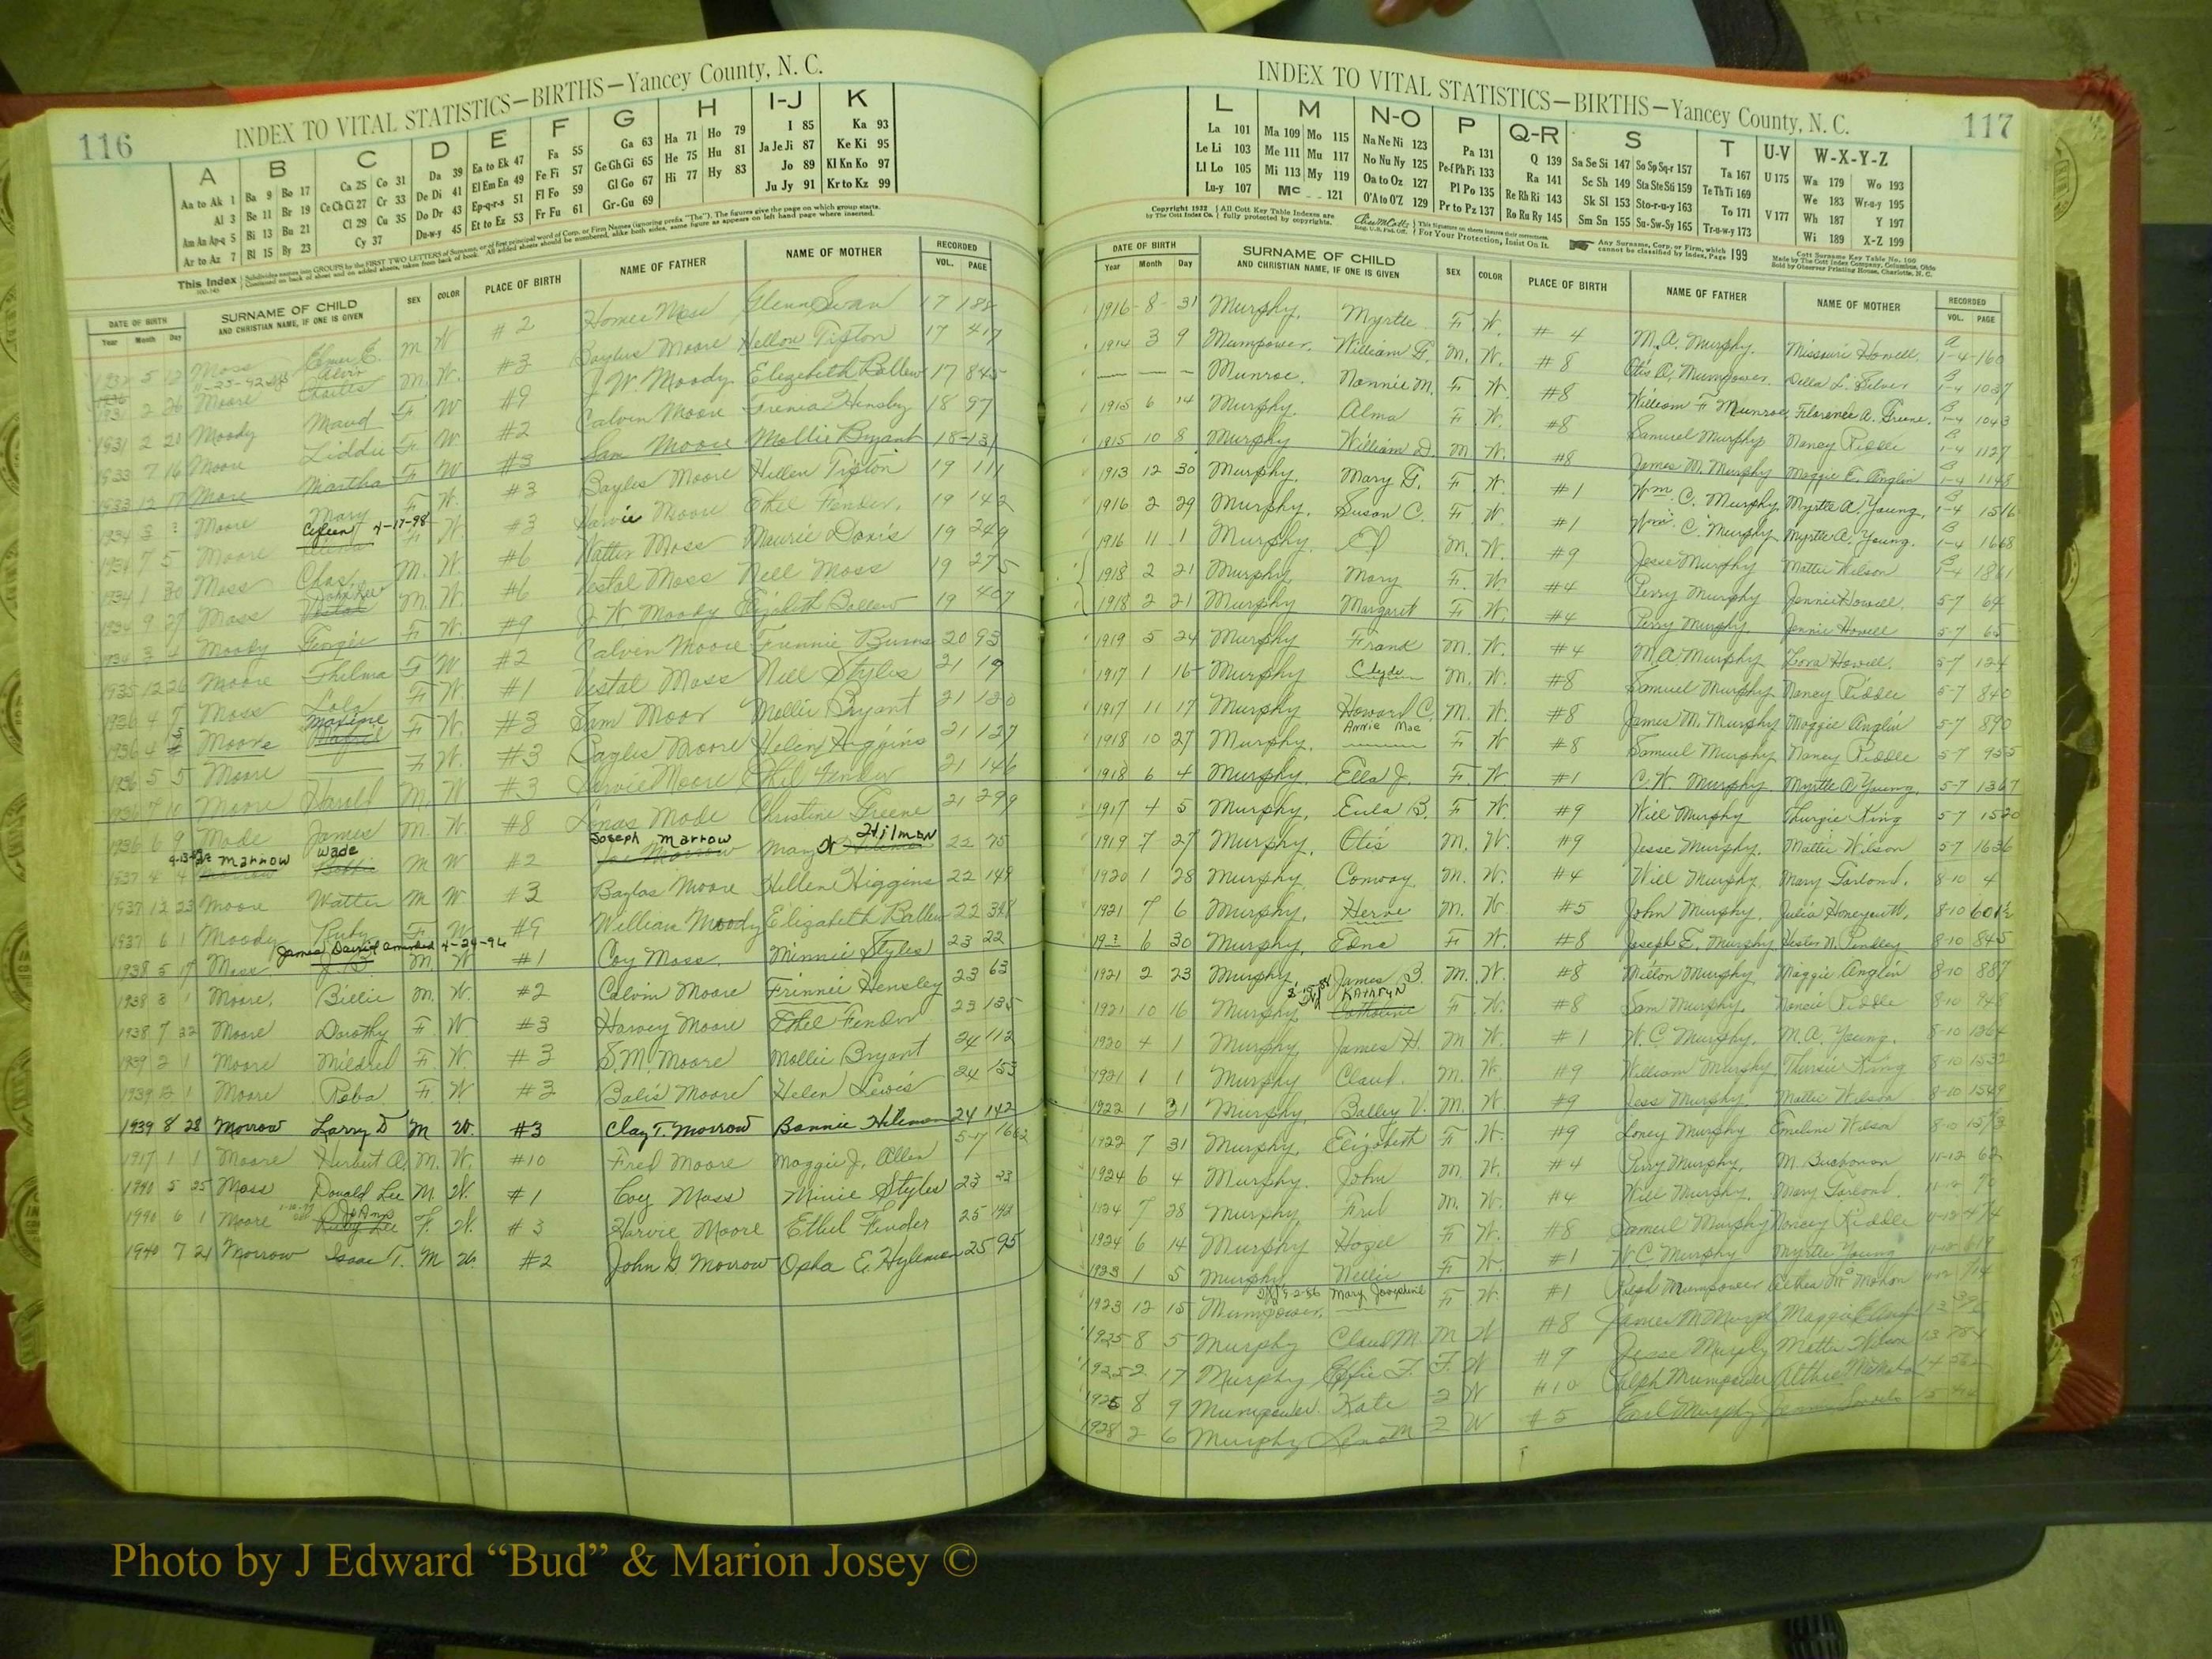 116
INDEX TO VITAL STATISTICS—BIRTHS—Yancey County, N. C.
A B C D E F G H I-J K
Aa to Ak 1 Ba 9 Bo 17 Ca 25 Co 31 Da 39 Ea to Ek 47 Fa 55 Ga 63 Ha 71 Ho 79 I 85 Ka 93
Al 3 Be 11 Br 19 Ce Ch Ci 27 Cr 33 De Di 41 El Em En 49 Fe Fi 57 Ge Gh Gi 65 He 75 Hu 81 Ja Je Ji 87 Ke Ki 95
Am An Ap-q 5 Bi 13 Bu 21 Cl 29 Cu 35 Do Dr 43 Ep-q-r-s 51 Fl Fo 59 Gl Go 67 Hi 77 Hy 83 Jo 89 Kl Kn Ko 97
Ar to Az 7 Bl 15 By 23 Cy 37 Du-w-y 45 Et to Ez 53 Fr Fu 61 Gr-Gu 69 Ju Jy 91 Kr to Kz 99
This Index
DATE OF BIRTH SURNAME OF CHILD SEX COLOR PLACE OF BIRTH NAME OF FATHER NAME OF MOTHER RECORDED
Year Month Day AND CHRISTIAN NAME, IF ONE IS GIVEN VOL. PAGE
Moss Elmer E. M W #2 Homer Moss Glenn Swan 17 188
Moore M. W. #3 Baylus Moore Hellon Tipton 17 417
1931 2 20 Moody Maud F W #9 J W Moody Elizebeth Ballew 17 845
1933 7 16 Moore Liddie F W #2 Calvin Moore Hensley 18 97
1933 12 17 Moore Martha F W #3 Sam Moore Mollie Bryant 18-131
1934 3 ? Moore Mary F W. #3 Bayles Moore Hellen Tipton 19 111
1934 7 5 Moore 4-17-98 F W. #3 Harvie Moore Ethel Fender. 19 142
1934 1 30 Moss Chas. M. W. #6 Watter Moss Maurie Davis 19 249
1934 9 27 Moss M. W. #6 Vestal Moss Nell Moss 19 275
1934 3 4 Moody F W. #9 J. W. Moody Elizabeth Ballew 19 407
1935 12 26 Moore Thelma F W #2 Calvin Moore Burns 20 93
1936 4 7 Moss Lola F W. #1 Vestal Moss Nell Styles 21 19
1936 4 Moore Maxine F W. #3 Sam Moor Mollie Bryant 21 130
1936 5 5 Moore F W. #3 Bayles Moore Helen Higgins 21 137
1936 7 10 Moore Harold M. W #3 Harvie Moore Ethel Fender 21 146
1936 6 9 Mode James M. W #8 Mode Christine Greene 21 299
Marrow Wade
1937 4 4 M W #2 Joseph Marrow May Hilman 22 75
1937 12 23 Moore Watter M W. #3 Baylas Moore Hellen Higgins 22 149
1937 6 1 Moody Ruby F W #9 William Moody Elizabeth Ballew 22 328
James David amended 4-24-96
1938 5 17 Moss M. W #1 Coy Moss. Minnie Styles 23 22
1938 3 1 Moore. Billie M. W. #2 Calvin Moore Frinnie Hensley 23 63
1938 7 22 Moore Dorothy F. W #3 Harvey Moore Ethel Fender 23 135
1939 2 1 Moore Mildred F. W. #3 S.M. Moore Mollie Bryant 24 112
1939 Moore Reba F. W #3 Balis Moore Helen Lewis 24 153
1939 8 28 Morrow Larry D M W. #3 Clay T. Morrow Bonnie Hileman 24 142
1917 1 1 Moore Herbert A. M. W. #10 Fred Moore Maggie J. Allen 5-17 1662
1940 5 25 Moss Donald Lee M. W. #1 Coy Moss Minie Styles 23 23
1940 6 1 Moore Jo Ann F. W. #3 Harvie Moore Ethel Fender 25 142
1940 7 21 Morrow Isaac T. M W. #2 John G. Morrow Opha E. Hyleman 25 95
117
INDEX TO VITAL STATISTICS—BIRTHS—Yancey County, N. C.
L M N-O P Q-R S T U-V W-X-Y-Z
La 101 Ma 109 Mo 115 Na Ne Ni 123 Pa 131 Q 139 Sa Se Si 147 So Sp Sq-r 157 Ta 167 U 175 Wa 179 Wo 193
Le Li 103 Me 111 Mu 117 No Nu Ny 125 Pe-f Ph Pi 133 Ra 141 Sc Sh 149 Sta Ste Sti 159 Te Th Ti 169 We 183 Wr-u-y 195
Ll Lo 105 Mi 113 My 119 Oa to Oz 127 Pl Po 135 Re Rh Ri 143 Sk Sl 153 Sto-r-u-y 163 To 171 V 177 Wh 187 Y 197
Lu-y 107 Mc 121 O'A to O'Z 129 Pr to Pz 137 Ro Ru Ry 145 Sm Sn 155 Su-Sw-Sy 165 Tr-u-w-y 173 Wi 189 X-Z 199
Copyright 1922 by The Cott Index Co. All Cott Key Table Indexes are fully protected by copyrights. For Your Protection, Insist On It. Any Surname, Corp. or Firm, which cannot be classified by Index, Page 199 Cott Surname Key Table No. 100 Made by The Cott Index Company, Columbus, Ohio Sold by Observer Printing House, Charlotte, N. C.
DATE OF BIRTH SURNAME OF CHILD SEX COLOR PLACE OF BIRTH NAME OF FATHER NAME OF MOTHER RECORDED
Year Month Day AND CHRISTIAN NAME, IF ONE IS GIVEN VOL. PAGE
1916 8 31 Murphy, Myrtle F. W. #4 M.A. Murphy. Missouri Howell. 1-4 160
1914 3 9 Mumpower. William G. M. W. #8 Otis A. Mumpower. Della L. Silver 1-4 1037
— — — Munroe. Nannie M. F. W. #8 William F Munroe Florence A. Greene. 1-4 1043
1915 6 14 Murphy. Alma F. W. #8 Samuel Murphy Nancy Riddle 1-4 1127
1915 10 8 Murphy William D. M W. #8 James M. Murphy Maggie E. Anglin 1-4 1148
1913 12 30 Murphy. Mary G. F. W. #1 Wm. C. Murphy Myrtle A. Young. 1-4 1516
1916 2 29 Murphy. Susan C. F. W. #1 Wm. C. Murphy Myrtle A. Young. 1-4 1668
1916 11 1 Murphy. Ed M. W. #9 Jesse Murphy Mattie Wilson 1-4 1861
1918 2 21 Murphy, Mary F. W. #4 Perry Murphy Jennie Howell. 5-7 64
1918 2 21 Murphy Margaret F. W. #4 Perry Murphy. Jennie Howell 5-7 65
1919 5 24 Murphy Frank M. W. #4 M A Murphy Lora Howell. 5-7 124
1917 1 16 Murphy Clyde M. W. #8 Samuel Murphy Nancy Riddle 5-7 840
1917 11 17 Murphy Howard C. M. W. #8 James M. Murphy Maggie Anglin 5-7 890
1918 10 27 Murphy. Annie Mae F W #8 Samuel Murphy Nancy Riddle 5-7 955
1918 6 4 Murphy. Ella J. F. W #1 C. W. Murphy Myrtle A Young. 5-7 1367
1917 4 5 Murphy, Eula B. F W. #9 Will Murphy King 5-7 1520
1919 7 27 Murphy, Otis M. W. #9 Jesse Murphy. Mattie Wilson 5-7 1636
1920 1 28 Murphy, Conway. M. W. #4 Will Murphy Mary Garland. 8-10 4
1921 7 6 Murphy, Herve M. W #5 John Murphy. Julia Honeycutt. 8-10 601½
19-? 6 30 Murphy, Edna F W. #8 Joseph E. Murphy Hester N. Pendley 8-10 845
1921 2 23 Murphy, James B. M. W. #8 Milton Murphy Maggie Anglin 8-10 887
1921 10 16 Murphy Kathryn F W. #8 Sam Murphy. Nancie Riddle 8-10
1920 4 1 Murphy, James H. M W. #1 W. C. Murphy. M.A. Young. 8-10 1364
1921 1 1 Murphy Claud. M. W. #9 William Murphy King 8-10 1532
1922 1 31 Murphy, Balley V. M. W #9 Jess Murphy Mattie Wilson 8-10 1549
1922 7 31 Murphy, Elizabeth F. W. #9 Loney Murphy Emeline Wilson
1924 6 4 Murphy. John M. W. #4 Perry Murphy. M. Buchanan 11-12 62
1924 7 28 Murphy, Fred M. W. #4 Will Murphy. Mary Garland.
1924 6 14 Murphy Hazel F W. #8 Samuel Murphy Nancy Riddle 11-12 474
1923 1 5 Murphy Nellie F W. #1 W.C. Murphy Myrtle Young
1923 12 15 Mumpower. 9-2-86 Mary Josephine F W. #1 Ralph Mumpower McMahon
1925 8 5 Murphy Claud M. M W #8 James M Murphy Maggie E. 13
1925 2 17 Murphy Effie F. F. W #9 Jesse Murphy Mattie Wilson 13
8 9 Mumpower. Kate 2 W #10 Ralph Mumpower Althie McMahan
1928 2 6 Murphy Lena M 2 W #5 Earl Murphy
Photo by J Edward “Bud” & Marion Josey ©